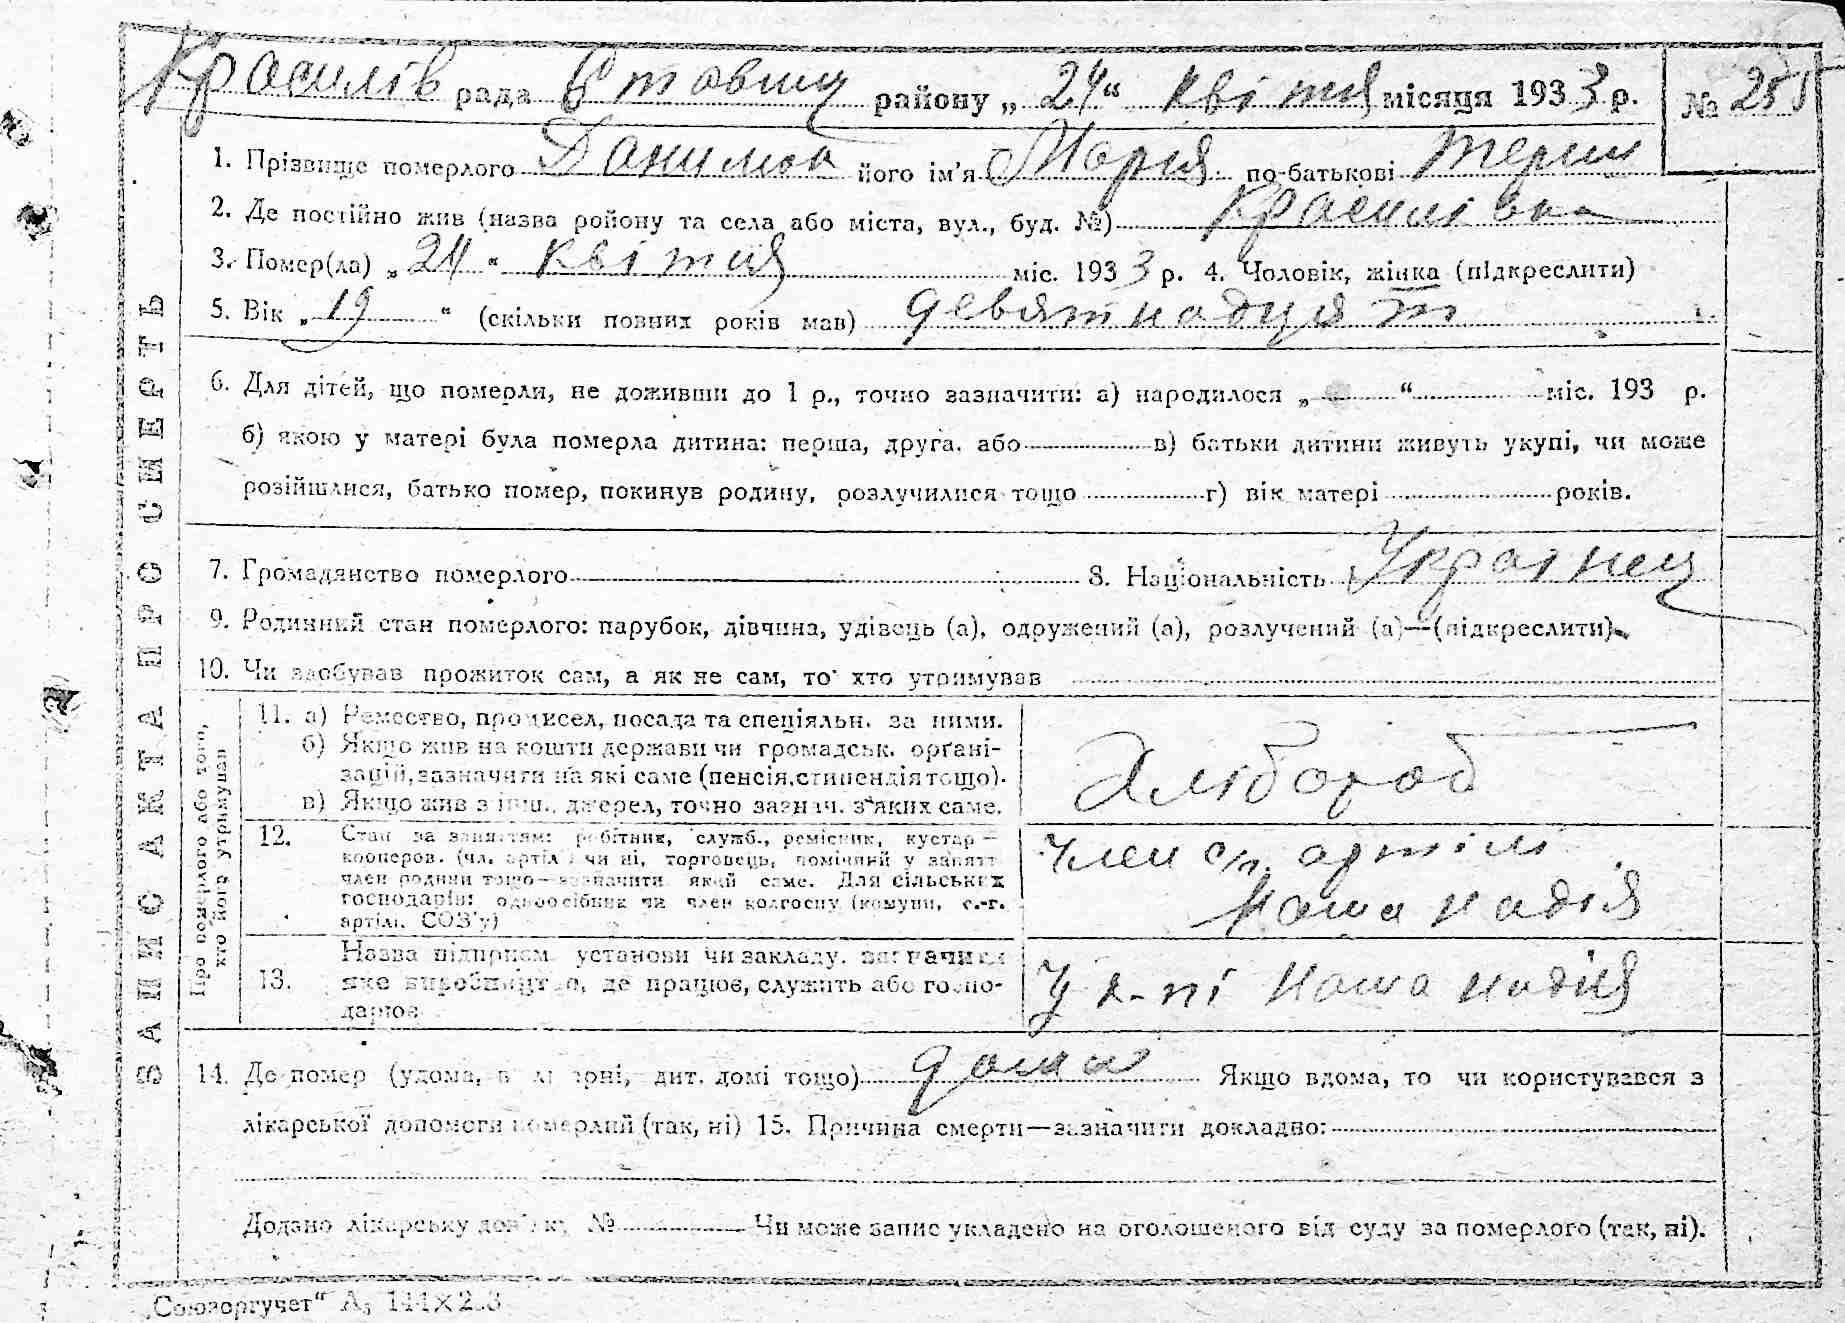 Красилів рада Ставищ району „24“ квітня місяця 1933 р. № 255
1. Прізвище померлого його ім'я Марія по-батькові Терин
2. Де постійно жив (назва ройону та села або міста, вул., буд. №) Красилівка
3. Помер(ла) „24“ квітня міс. 1933 р. 4. Чоловік, жінка (підкреслити)
5. Вік „19“ (скільки повних років мав) девятнадцят
6. Для дітей, що померли, не доживши до 1 р., точно зазначити: а) народилося „ “ міс. 193 р.
б) якою у матері була померла дитина: перша, друга, або в) батьки дитини живуть укупі, чи може
розійшлися, батько помер, покинув родину, розлучилися тощо г) вік матері років.
7. Громадянство померлого 8. Національність Украінец
9. Родинний стан померлого: парубок, дівчина, удівець (а), одружений (а), розлучений (а)—(підкреслити)
10. Чи здобував прожиток сам, а як не сам, то хто утримував
ЗАПИС АКТА ПРО СМЕРТЬ
Про померлого або того,
хто його утримував
11. а) Ремество, промисел, посада та спеціяльн. за ними.
б) Якщо жив на кошти держави чи громадськ. орґані-
зацій, зазначити на які саме (пенсія, стипендія тощо).
в) Якщо жив з інш. джерел, точно зазнач. з яких саме.
Хлібороб
12. Стан за заняттям: робітник, служб., ремісник, кустар—
кооперов. (чл. артіл.) чи ні, торговець, помічний у занятт
член родини тощо—зазначити який саме. Для сільських
господарів: одноосібник чи член колгоспу (комуни, с.-г.
артілі, СОЗ'у)
Член с/г. артілі
Наша надія
13. Назва підприєм. установи чи закладу, зазначити
яке виробництво, де працює, служить або госпо-
дарює
У к-пі Наша надія
14. Де помер (удома, в лікарні, дит. домі тощо) дома Якщо вдома, то чи користувався з
лікарської допомоги померлий (так, ні) 15. Причина смерти—зазначити докладно:
Додано лікарську довідку № Чи може запис укладено на оголошеного від суду за померлого (так, ні).
„Союзоргучет“ А₅